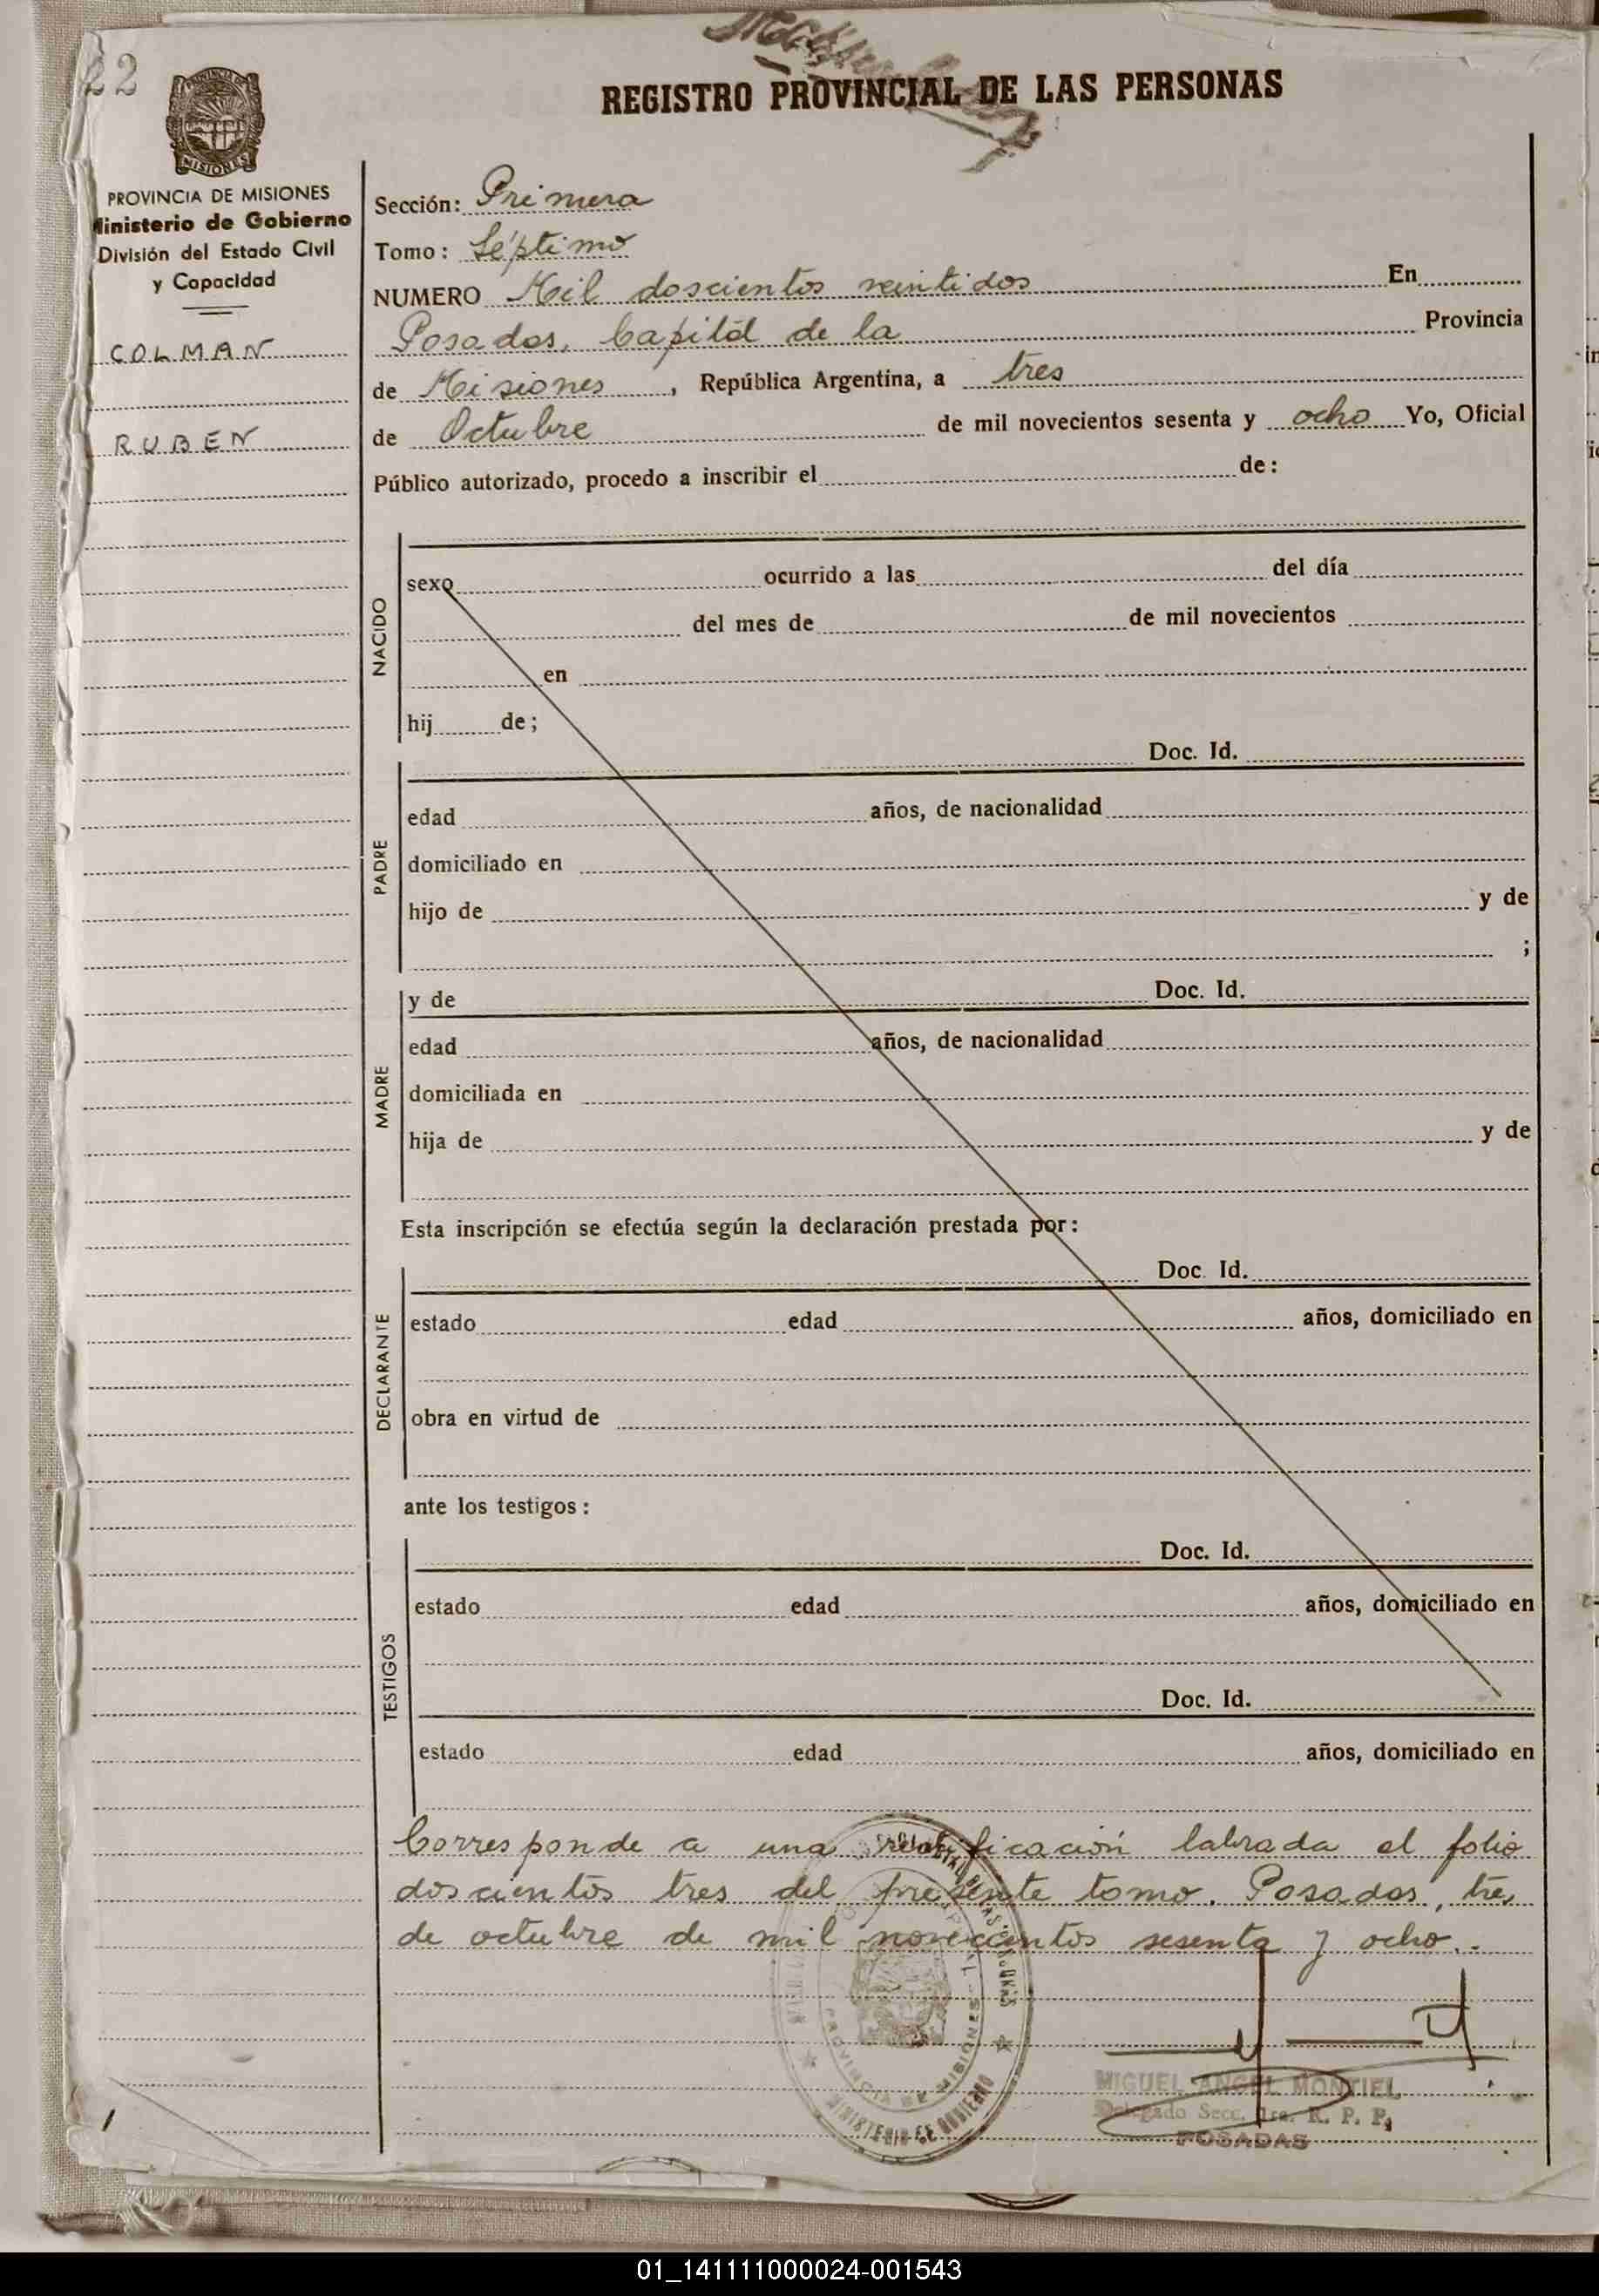 22
REGISTRO PROVINCIAL DE LAS PERSONAS
PROVINCIA DE MISIONES
Ministerio de Gobierno
División del Estado Civil
y Capacidad
COLMAN
RUBEN
Sección: Primera
Tomo: Séptimo
NUMERO Mil doscientos veintidos En
Posadas, Capital de la Provincia
de Misiones, República Argentina, a tres
de Octubre de mil novecientos sesenta y ocho Yo, Oficial
Público autorizado, procedo a inscribir el de:
NACIDO
sexo ocurrido a las del día
del mes de de mil novecientos
en
hij de;
PADRE
Doc. Id.
edad años, de nacionalidad
domiciliado en
hijo de y de
;
MADRE
y de Doc. Id.
edad años, de nacionalidad
domiciliada en
hija de y de
Esta inscripción se efectúa según la declaración prestada por:
DECLARANTE
Doc. Id.
estado edad años, domiciliado en
obra en virtud de
ante los testigos:
TESTIGOS
Doc. Id.
estado edad años, domiciliado en
Doc. Id.
estado edad años, domiciliado en
Corresponde a una reatificación labrada al folio
doscientos tres del presente tomo. Posadas, tres
de octubre de mil novecientos sesenta y ocho.-
PROVINCIA DE MISIONES
MINISTERIO DE GOBIERNO
MIGUEL ANGEL MONTIEL
Delegado Secc. 1ra. R. P. P.
POSADAS
01_141111000024-001543